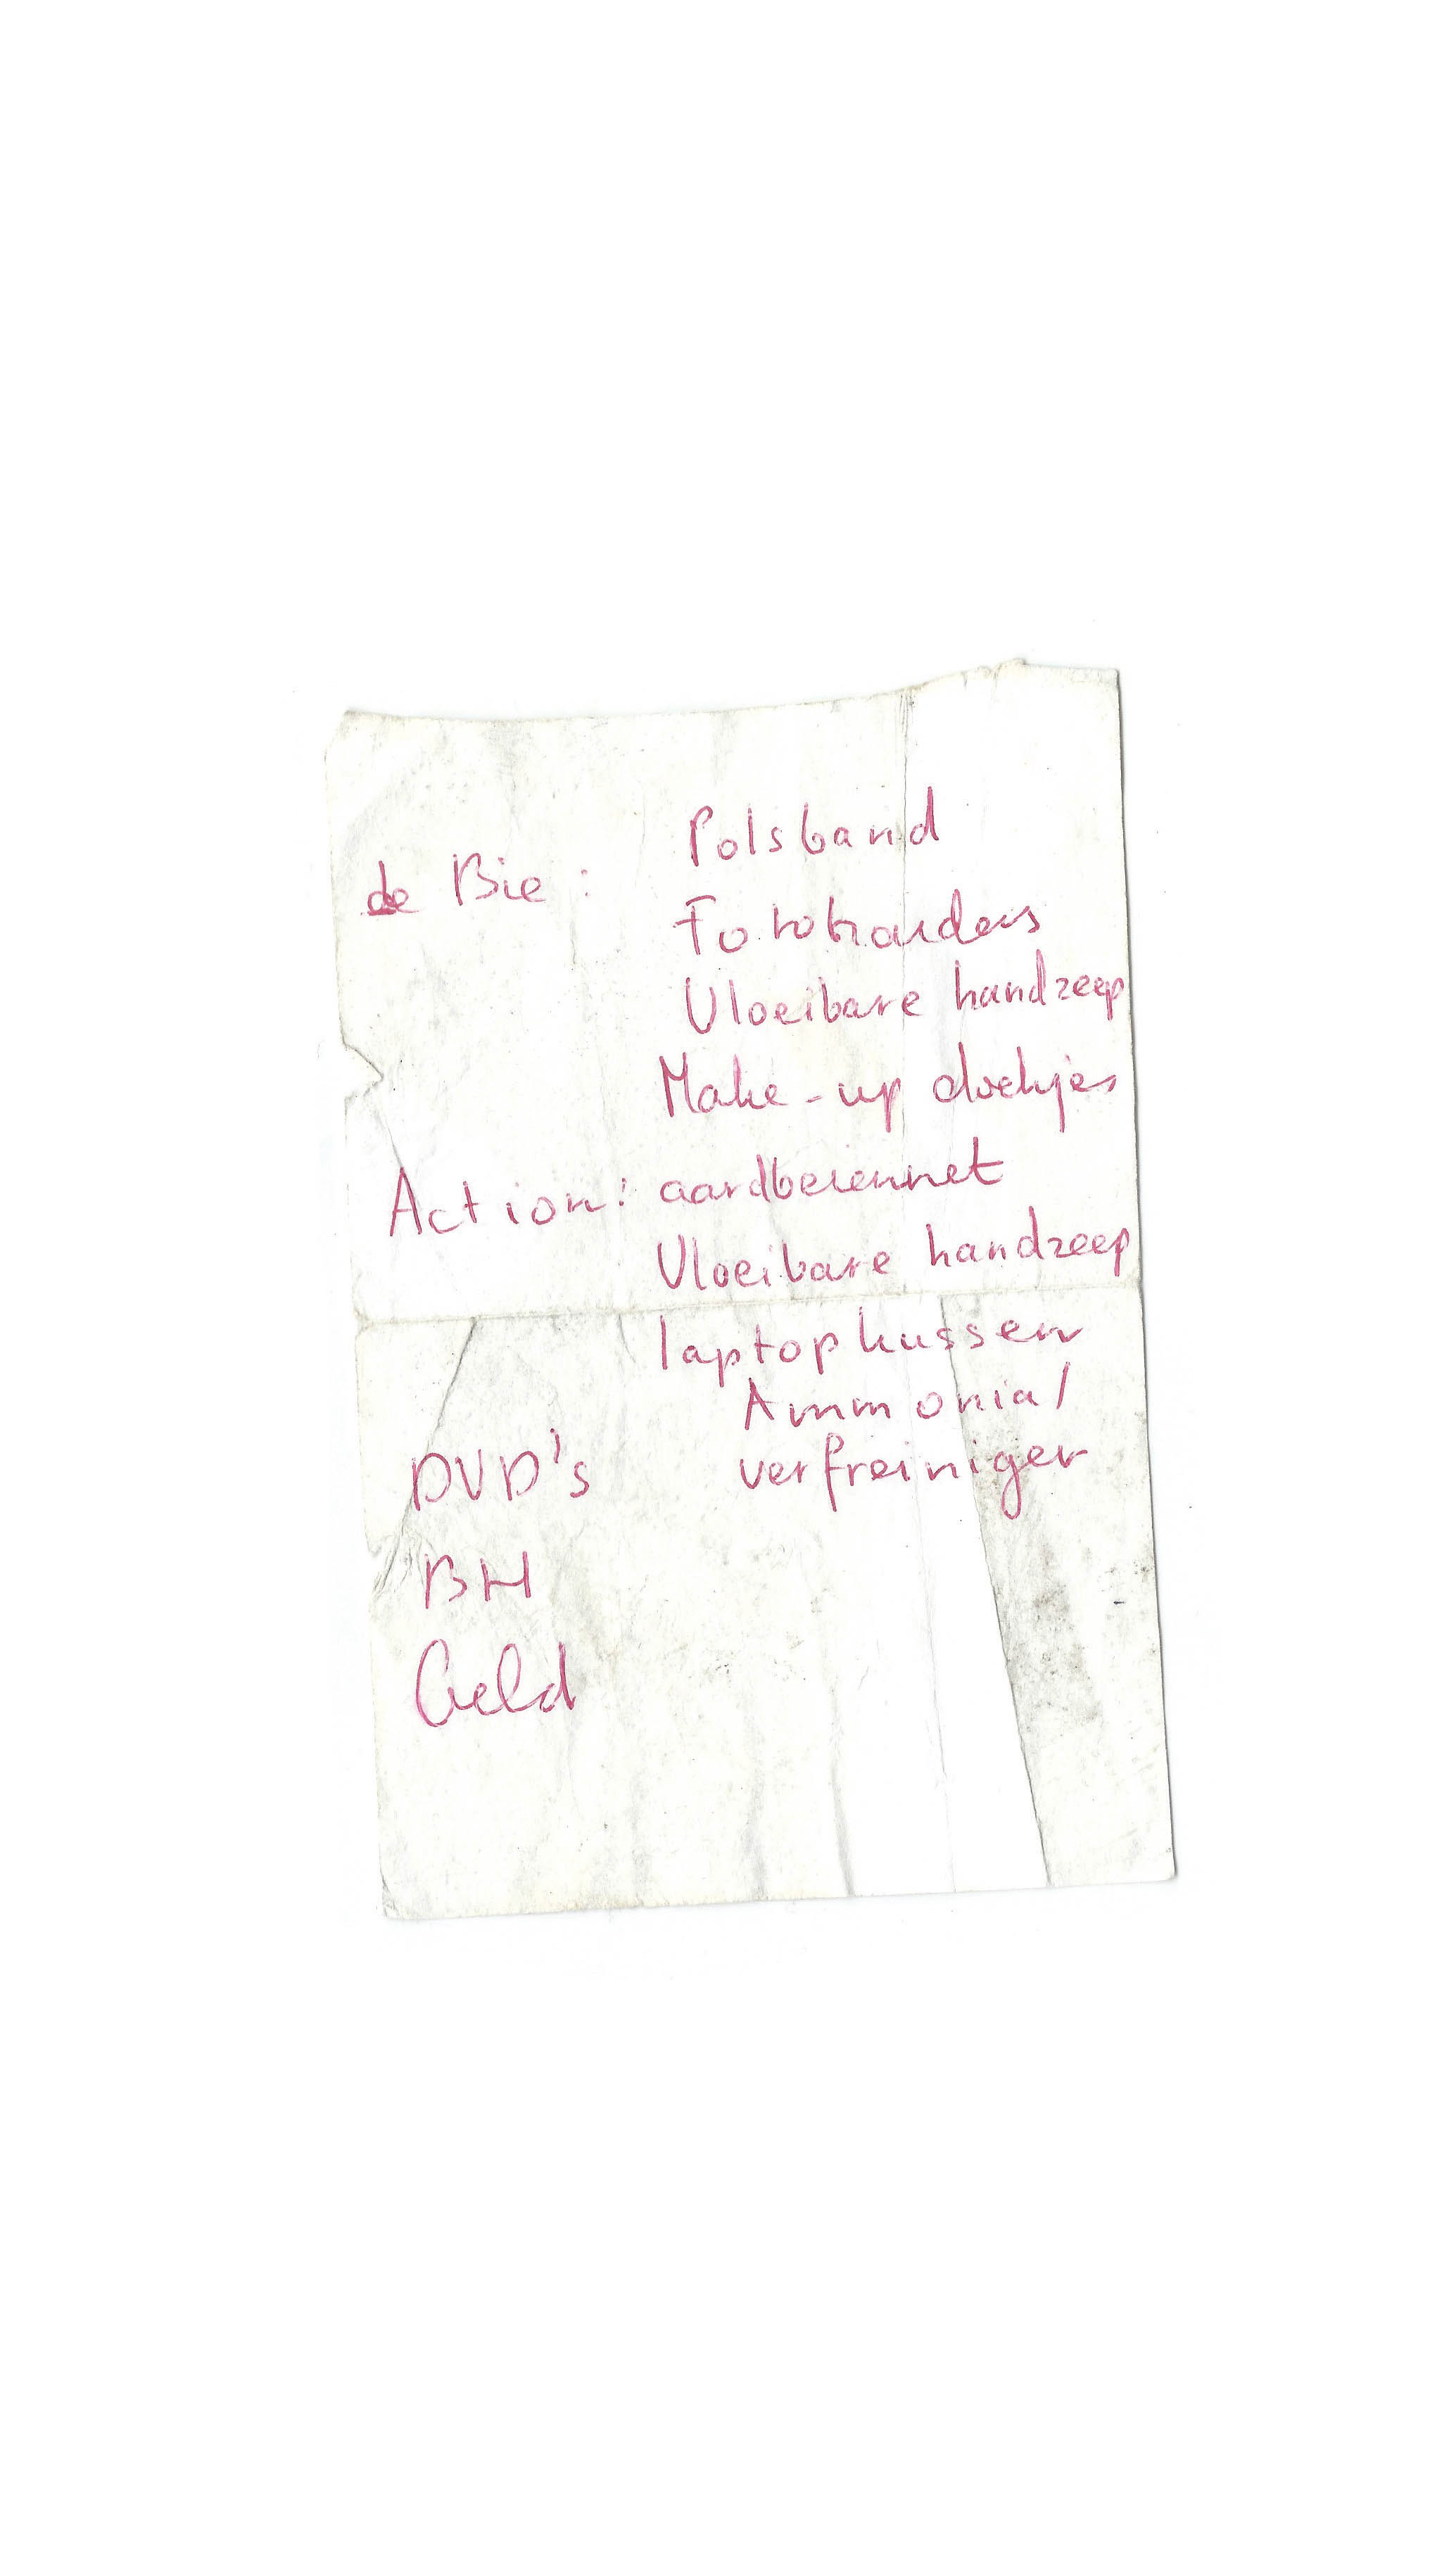 Polsband
de Bie :
Vloeibare handzeep
Make-up doekjes
Action: aardbeiennet
Vloeibare handzeep
laptopkussen
Ammonia/
DVD's verfreiniger
BH
Geld